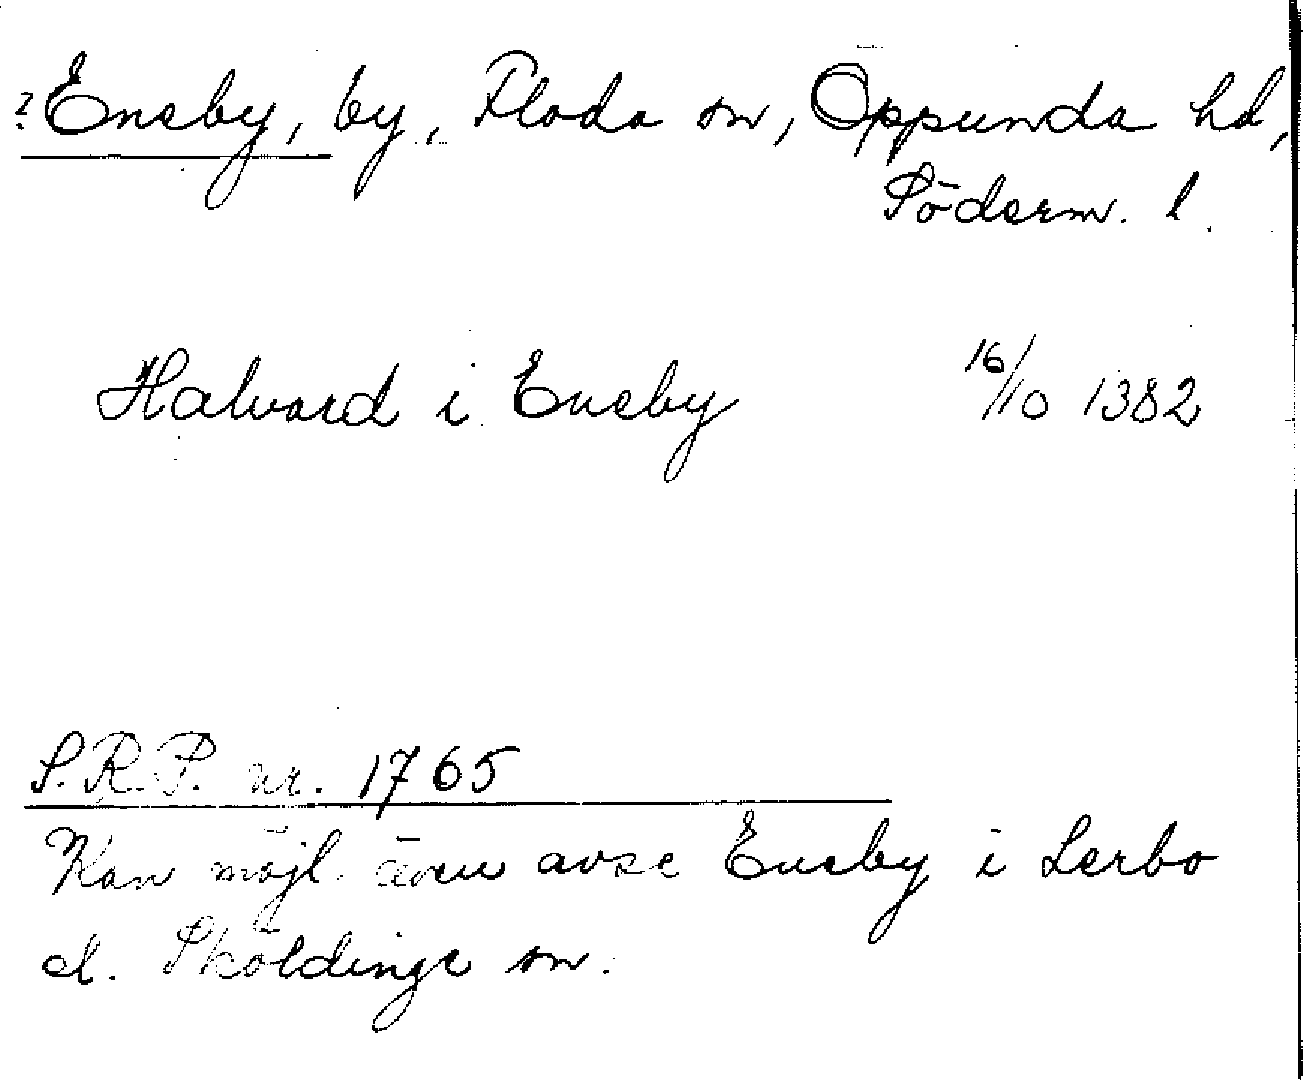 ? Ensby, by, Floda sn, Oppunda hd,
Söderm. l.
Halvard i Ensby 16/10 1382
S.R.P. nr. 1765
Kan möjl. även avse Ensby i Lerbo
el. Sköldinge sn.